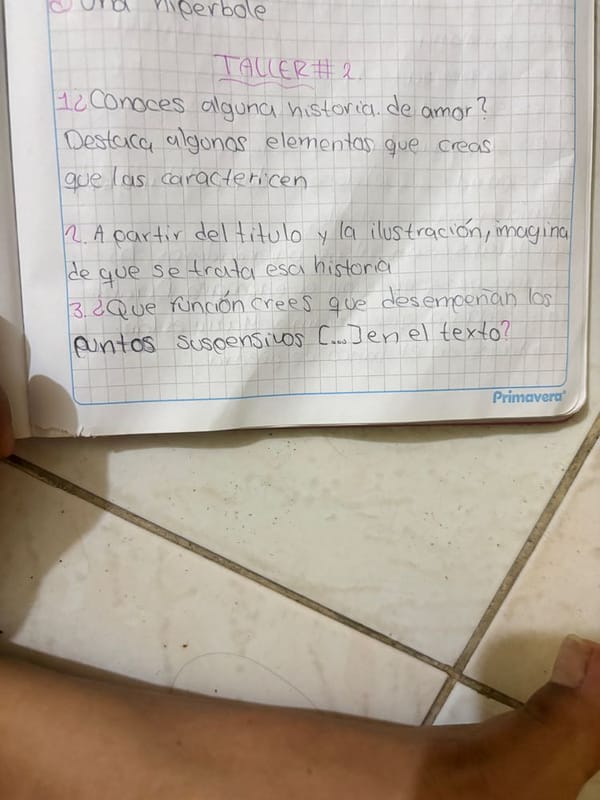 una hiperbole
TALLER # 2.
1¿Conoces alguna historia. de amor?
Destaca, algunos elementos que creas
que las caractericen
2. A partir del titulo y la ilustración, imagina
de que se trata esa historia
3. ¿Que función crees que desempeñan los
puntos suspensivos [...] en el texto?
Primavera